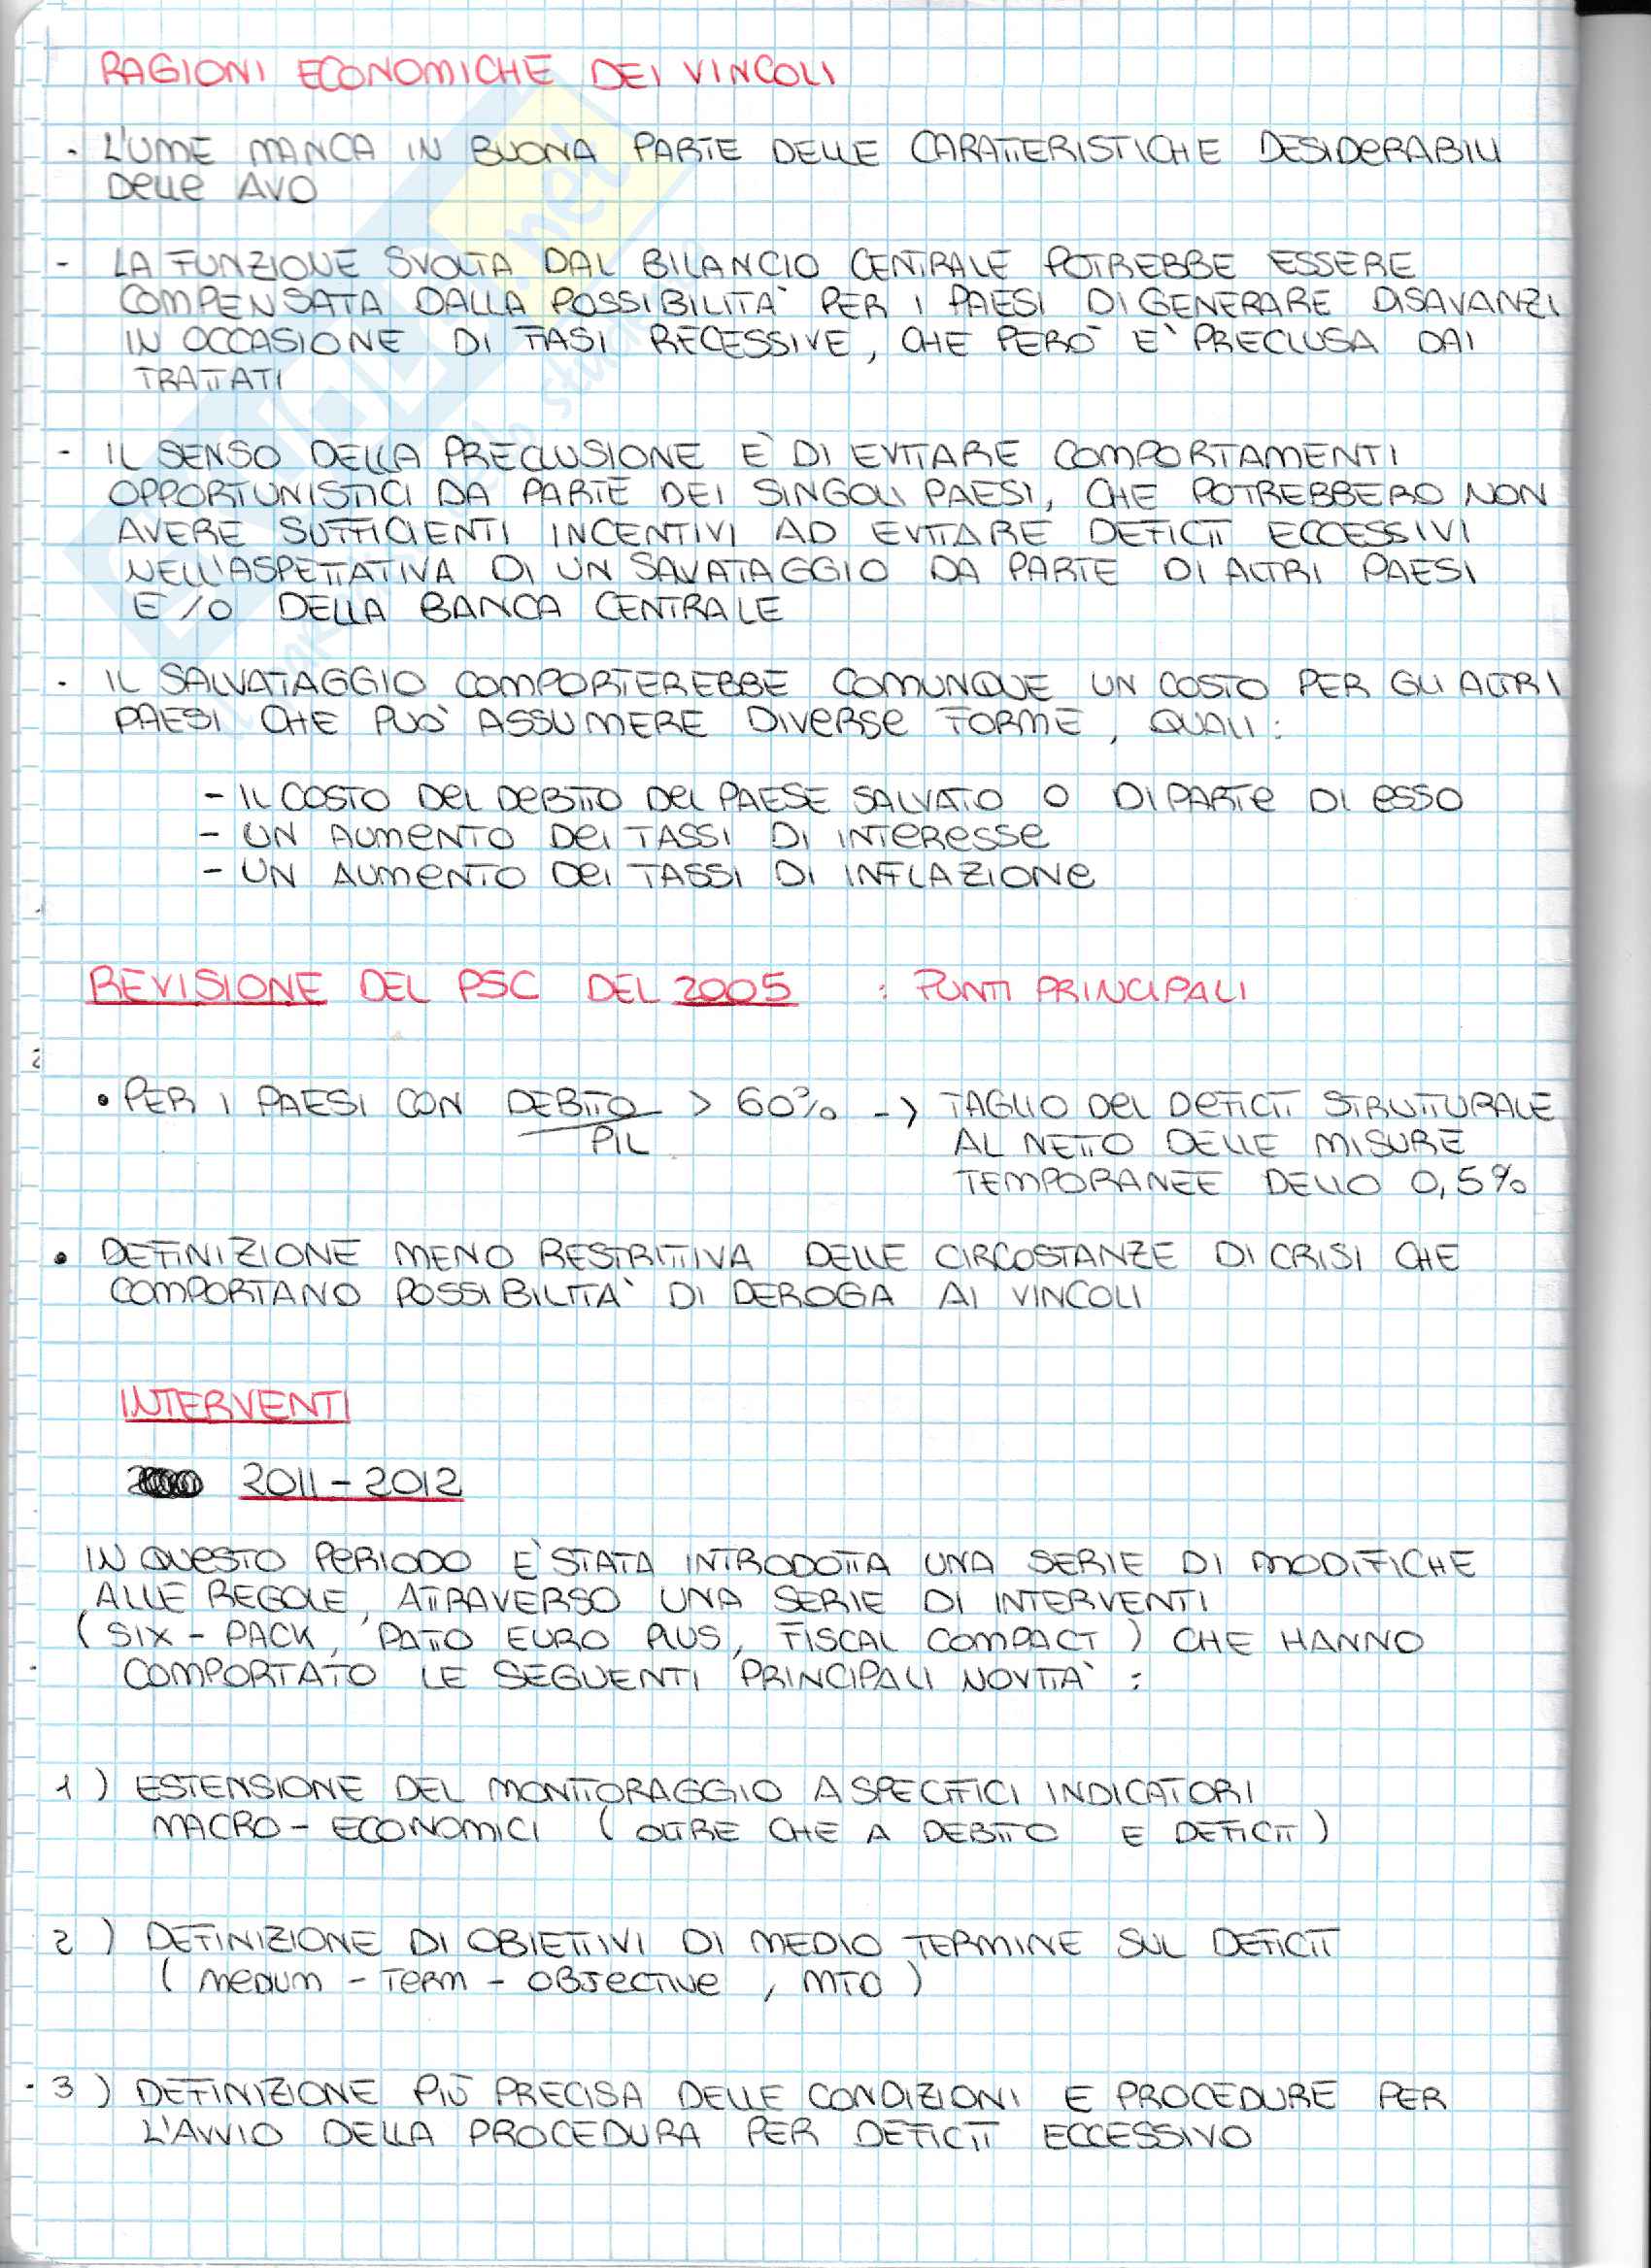 RAGIONI ECONOMICHE DEI VINCOLI
- L'UME MANCA IN BUONA PARTE DELLE CARATTERISTICHE DESIDERABILI
DELLE AVO
- LA FUNZIONE SVOLTA DAL BILANCIO CENTRALE POTREBBE ESSERE
COMPENSATA DALLA POSSIBILITA' PER I PAESI DI GENERARE DISAVANZI
IN OCCASIONE DI FASI RECESSIVE, CHE PERO' E' PRECLUSA DAI
TRATTATI
- IL SENSO DELLA PRECLUSIONE E' DI EVITARE COMPORTAMENTI
OPPORTUNISTICI DA PARTE DEI SINGOLI PAESI, CHE POTREBBERO NON
AVERE SUFFICIENTI INCENTIVI AD EVITARE DEFICIT ECCESSIVI
NELL'ASPETTATIVA DI UN SAVATAGGIO DA PARTE DI ALTRI PAESI
E/O DELLA BANCA CENTRALE
- IL SALVATAGGIO COMPORTEREBBE COMUNQUE UN COSTO PER GLI ALTRI
PAESI CHE PUO' ASSUMERE DIVERSE FORME, QUALI:
- IL COSTO DEL DEBITO DEL PAESE SALVATO O DI PARTE DI ESSO
- UN AUMENTO DEI TASSI DI INTERESSE
- UN AUMENTO DEI TASSI DI INFLAZIONE
REVISIONE DEL PSC DEL 2005 : PUNTI PRINCIPALI
• PER I PAESI CON DEBITO/PIL > 60% -> TAGLIO DEL DEFICIT STRUTTURALE
AL NETTO DELLE MISURE
TEMPORANEE DELLO 0,5%
• DEFINIZIONE MENO RESTRITTIVA DELLE CIRCOSTANZE DI CRISI CHE
COMPORTANO POSSIBILITA' DI DEROGA AI VINCOLI
INTERVENTI
2011-2012
IN QUESTO PERIODO E' STATA INTRODOTTA UNA SERIE DI MODIFICHE
ALLE REGOLE, ATTRAVERSO UNA SERIE DI INTERVENTI
(SIX-PACK, PATTO EURO PLUS, FISCAL COMPACT) CHE HANNO
COMPORTATO LE SEGUENTI PRINCIPALI NOVITA':
1) ESTENSIONE DEL MONITORAGGIO A SPECIFICI INDICATORI
MACRO-ECONOMICI (OLTRE CHE A DEBITO E DEFICIT)
2) DEFINIZIONE DI OBIETTIVI DI MEDIO TERMINE SUL DEFICIT
(MEDIUM-TERM-OBJECTIVE, MTO)
3) DEFINIZIONE PIÙ PRECISA DELLE CONDIZIONI E PROCEDURE PER
L'AVVIO DELLA PROCEDURA PER DEFICIT ECCESSIVO